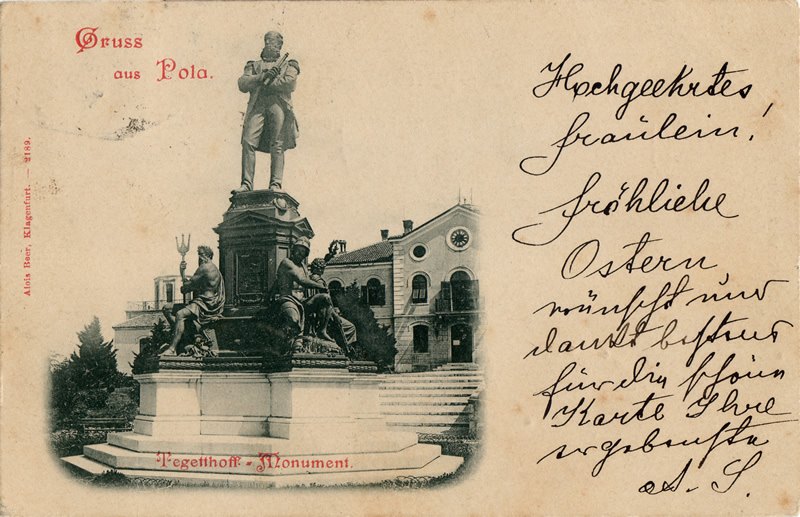 Gruss
aus Pola.
Alois Beer, Klagenfurt. — 2189.
Tegetthoff - Monument.
Hochgeehrtes
fraülein!
fröhliche
Ostern
wünscht und
dankt bestens
für die schöne
Karte Ihre
ergebenste
A. S.